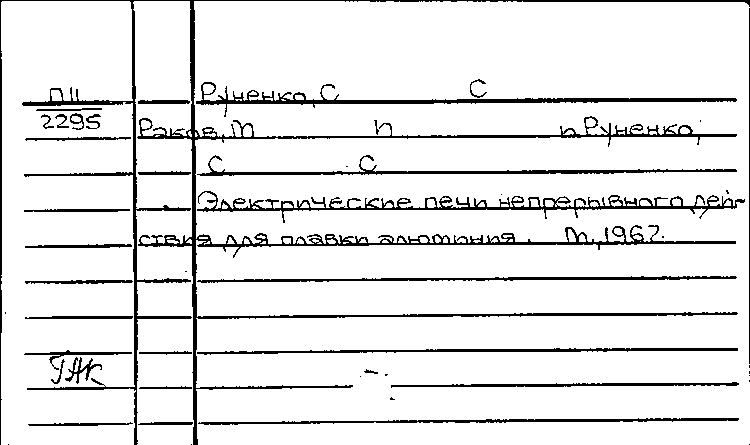 П11 Руненко, С С
2295 Раков, М П и Руненко,
С С
Электрические печи непрерывного дей-
ствия для плавки алюминия. М., 1967.
ГАК